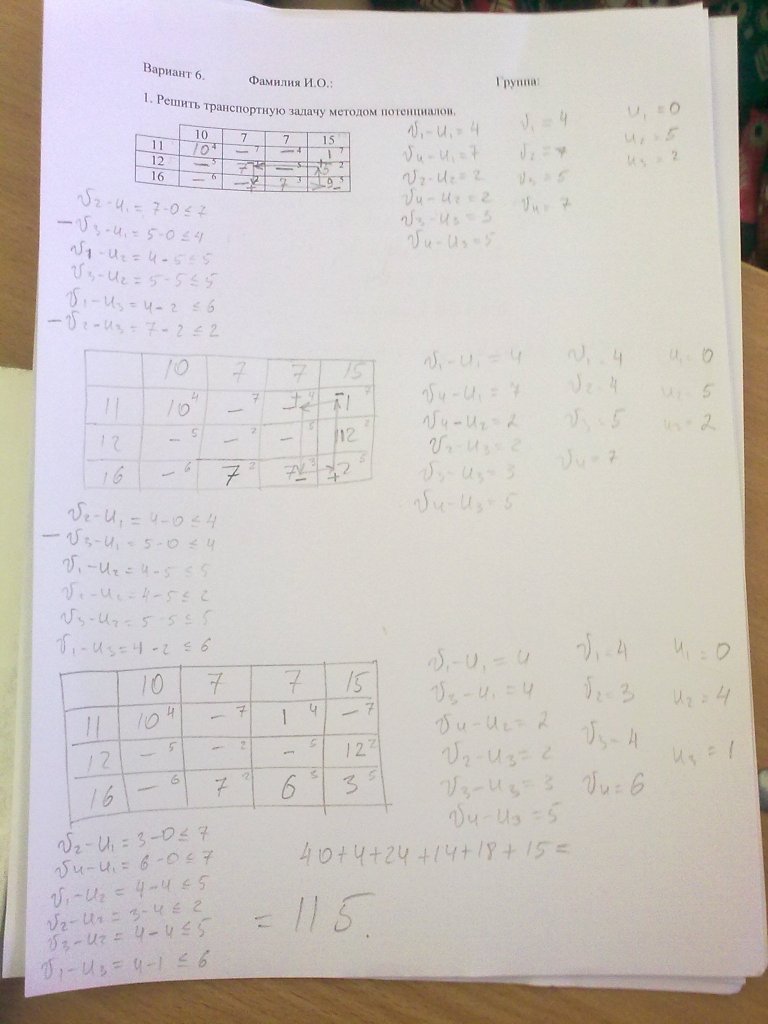 Вариант 6. Фамилия И.О.: Группа:
1. Решить транспортную задачу методом потенциалов.
10 7 7 15
11 10⁴ –⁷ –⁴ 1⁷
12 –⁵
16 –⁶ 7³
v₁-u₁=4 v₁=4 u₁=0
v₄-u₁=7 u₂=5
v₂-u₂=2 v₃=5 u₃=2
v₄-u₂=2 v₄=7
v₃-u₃=3
v₄-u₃=5
v₂-u₁=7-0≤7
– v₃-u₁=5-0≤4
v₁-u₂=4-5≤5
v₃-u₂=5-5≤5
v₁-u₃=4-2≤6
– v₂-u₃=7-2≤2
10 7 7 15
11 10⁴ –⁷ +⁴ -1⁷
12 –⁵ –² –⁵ 12²
16 –⁶ 7² 7³ 2⁵
v₁-u₁=4 v₁=4 u₁=0
v₄-u₁=7 v₂=4 u₂=5
v₄-u₂=2 v₃=5 u₃=2
v₃-u₃=3 v₄=7
v₄-u₃=5
v₂-u₁=4-0≤4
– v₃-u₁=5-0≤4
v₁-u₂=4-5≤5
v₂-u₂=4-5≤2
v₃-u₂=5-5≤5
v₁-u₃=4-2≤6
10 7 7 15
11 10⁴ –⁷ 1⁴ –⁷
12 –⁵ –² –⁵ 12²
16 –⁶ 7² 6³ 3⁵
v₁-u₁=4 v₁=4 u₁=0
v₃-u₁=4 v₂=3 u₂=4
v₄-u₂=2 v₃=4 u₃=1
v₂-u₃=2 v₄=6
v₃-u₃=3
v₄-u₃=5
v₂-u₁=3-0≤7
v₄-u₁=6-0≤7
v₁-u₂=4-4≤5
v₂-u₂=3-4≤2
v₃-u₂=4-4≤5
v₁-u₃=4-1≤6
40+4+24+14+18+15=
=115.